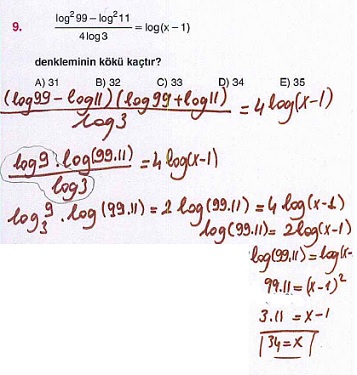 9. log²99 – log²11 / 4 log3 = log(x – 1)
denkleminin kökü kaçtır?
A) 31 B) 32 C) 33 D) 34 E) 35
(log99 – log11)(log99 + log11) / log3 = 4 log(x-1)
log9 . log(99.11) / log3 = 4 log(x-1)
log₃9 . log(99.11) = 2 log(99.11) = 4 log(x-1)
log(99.11) = 2log(x-1)
log(99.11) = log(x-
99.11 = (x-1)²
3.11 = x-1
34 = x